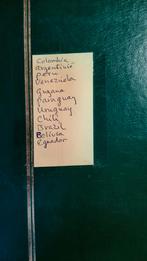 Colombia
Argentinië
Peru
Venezuela
Guyana
Paraguay
Uruguay
Chili
Brazil
Bolivia
Equador